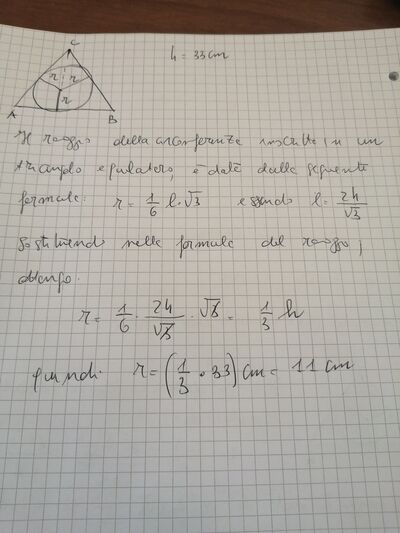 C
h = 33 cm
r r
r
A B
Il raggio della circonferenza inscritta in un
triangolo equilatero, è data dalla seguente
formula: r = 1/6 l · √3 essendo l = 2h/√3
Sostituendo nella formula del raggio,
ottengo:
r = 1/6 · 2h/√3 · √3 = 1/3 h
quindi: r = (1/3 · 33) cm = 11 cm